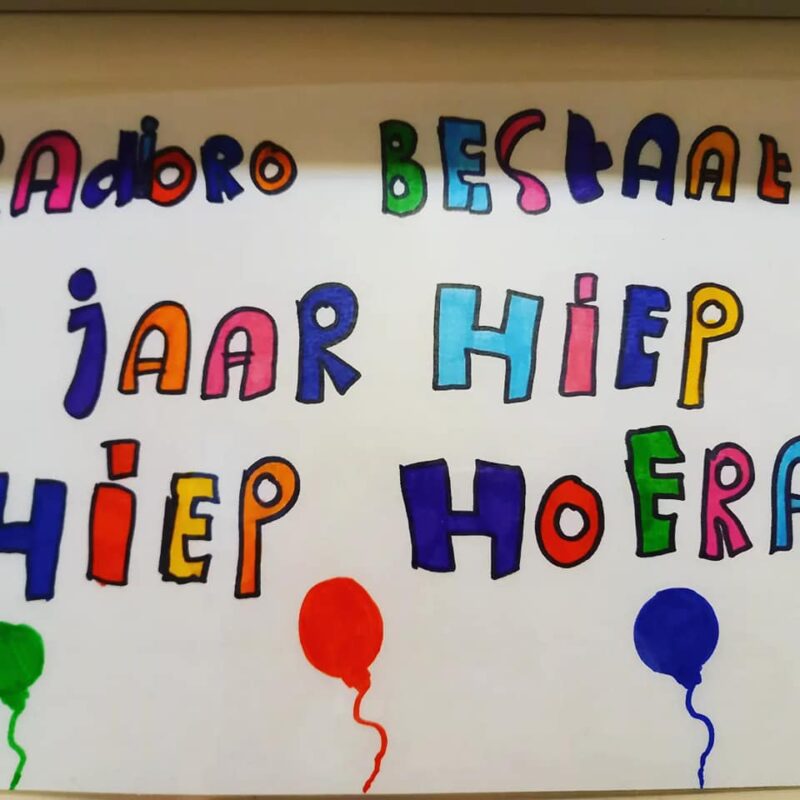 RAdioRO BEStAAt
jAAR HiEP
HiEP HOERA